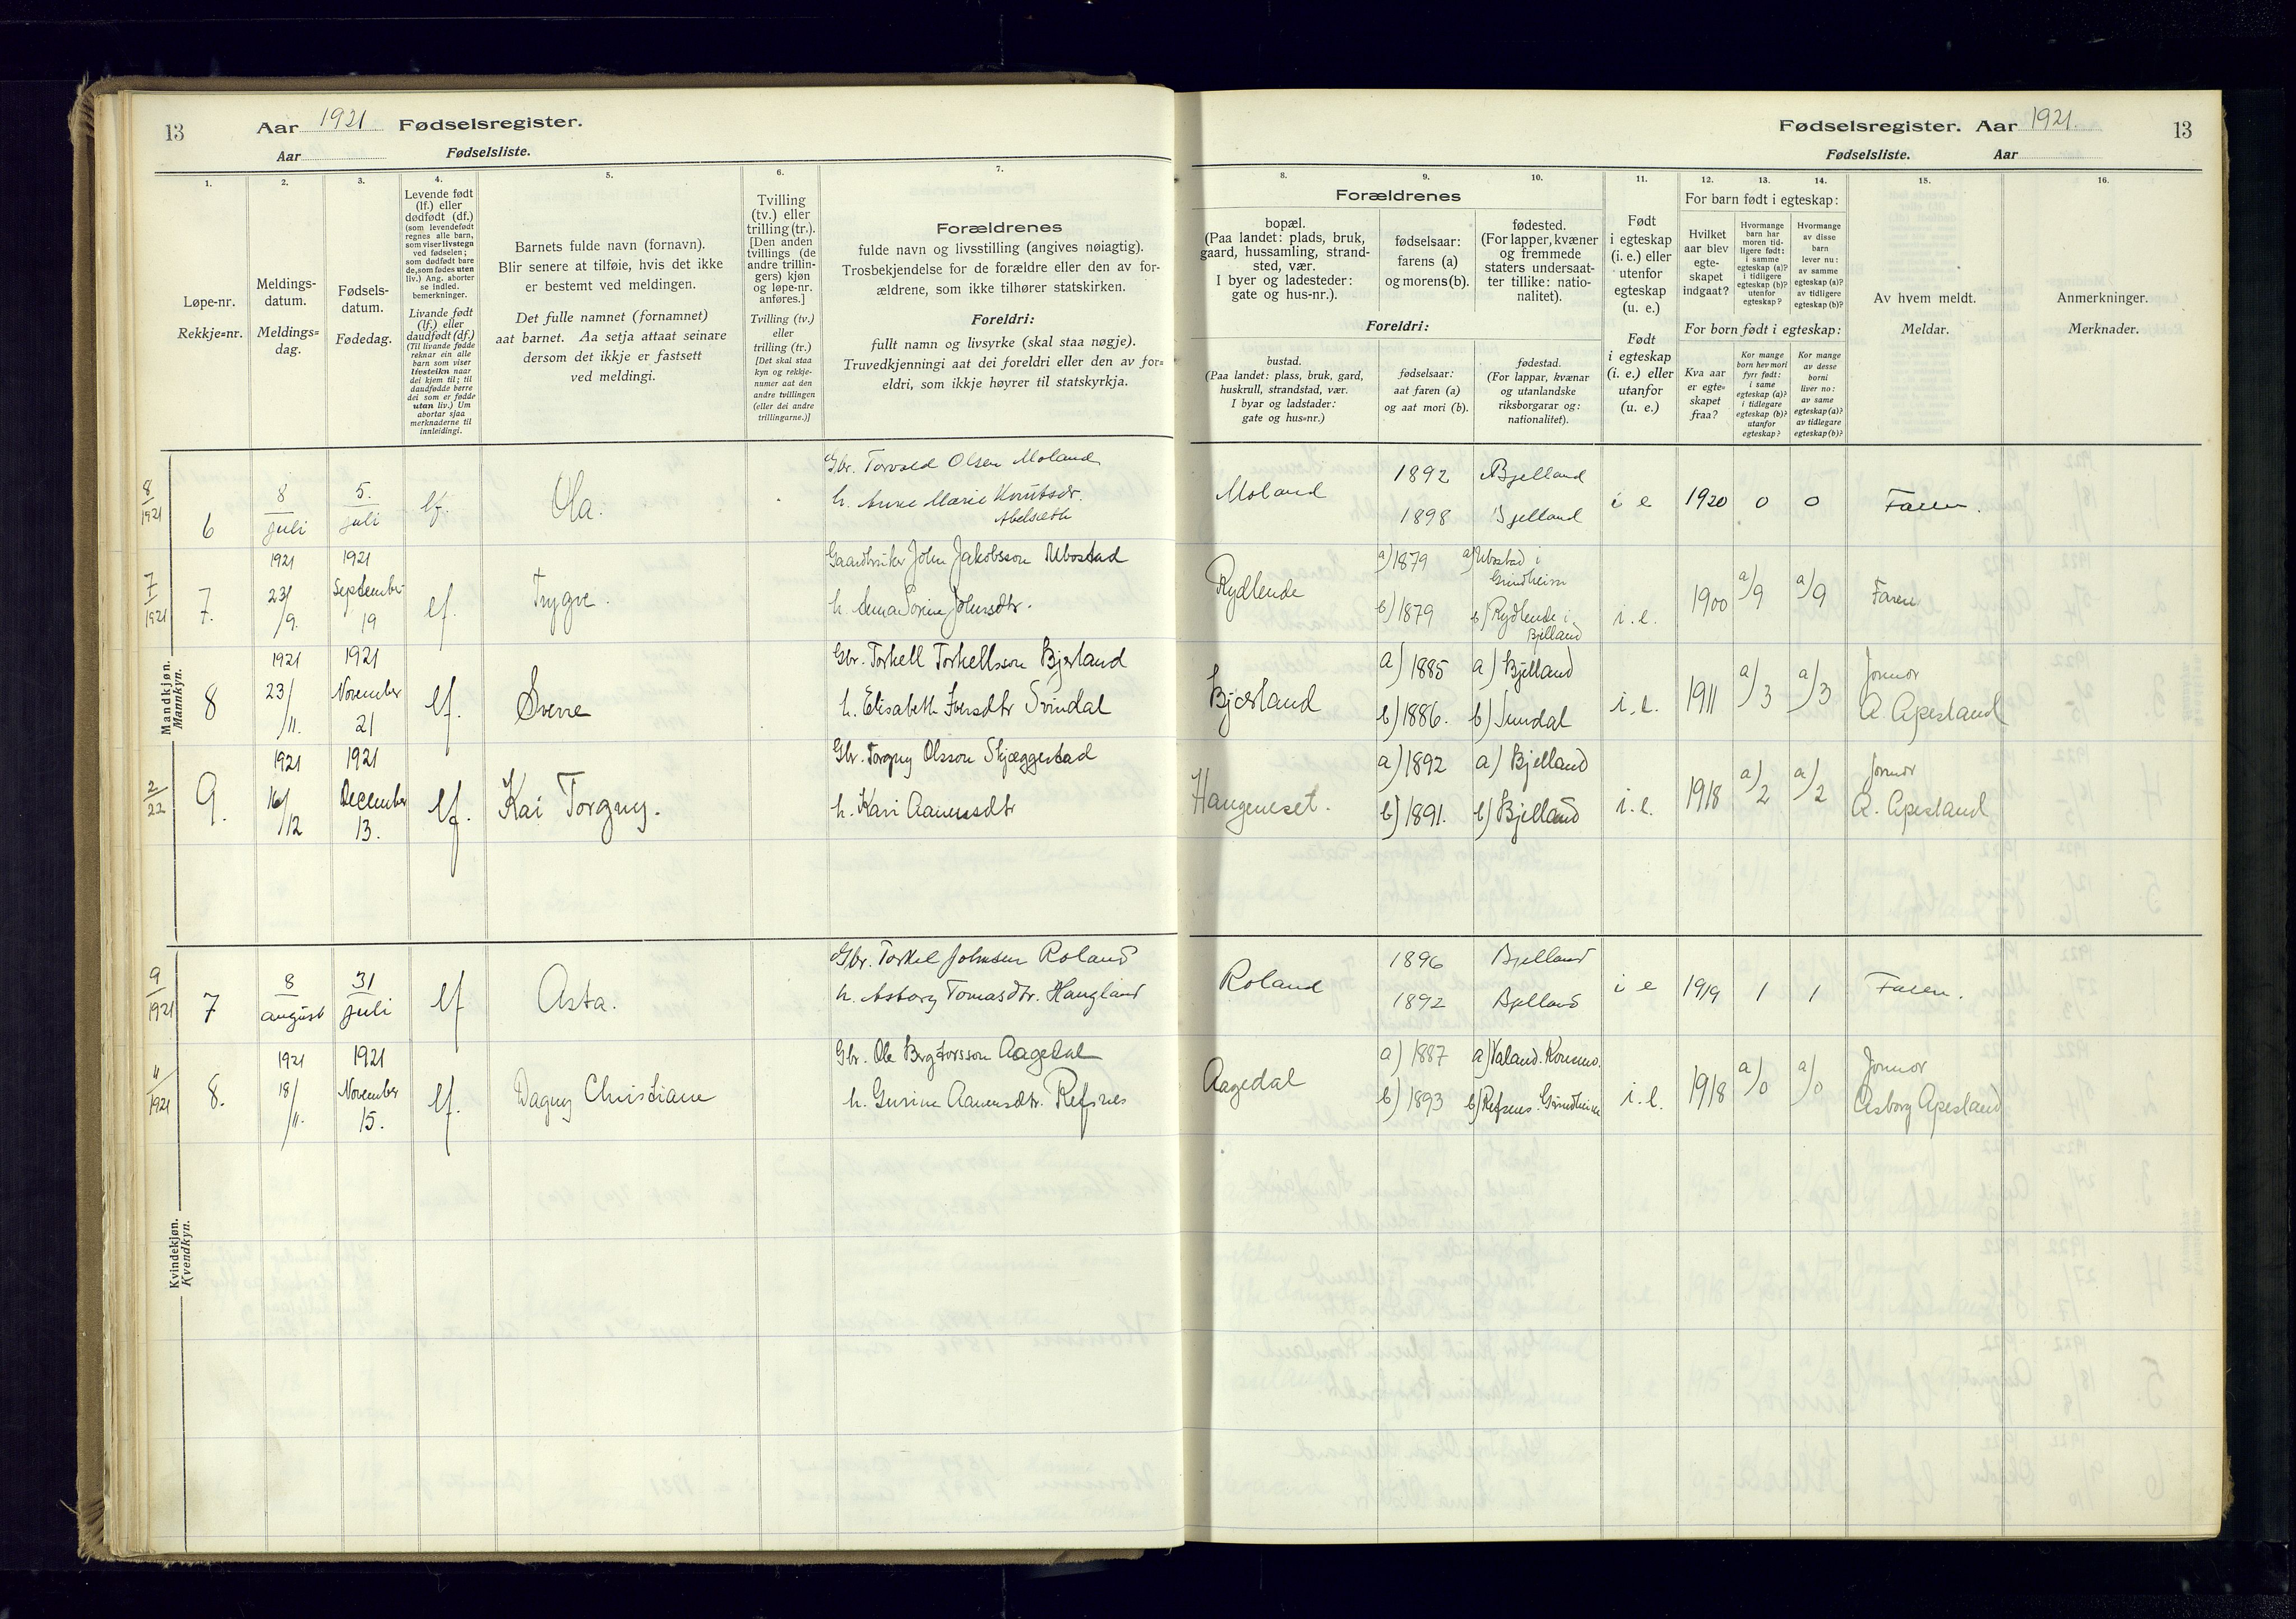 13
Aar 1921 Fødselsregister.
Aar Fødselsliste.
1.
2.
3.
4.
5.
6.
7.
Løpe-nr.
Rekkje=nr.
Meldings-
datum.
Meldings=
dag.
Fødsels-
datum.
Fødedag.
Levende født
(lf.) eller
dødfødt (df.)
(som levendefødt
regnes alle barn,
som viser livstegn
ved fødselen;
som dødfødt bare
de, som fødes uten
liv.) Ang. aborter
se indled.
bemerkninger.
Livande født
(lf.) eller
daudfødt (df.)
(Til livande fødde
reknar ein alle
barn som viser
livsteikn naar
dei kjem til; til
daudfødde berre
dei som er fødde
utan liv.) Um
abortar sjaa
merknaderne til
innleidingi.
Barnets fulde navn (fornavn).
Blir senere at tilføie, hvis det ikke
er bestemt ved meldingen.
Det fulle namnet (fornamnet)
aat barnet. Aa setja attaat seinare
dersom det ikkje er fastsett
ved meldingi.
Tvilling
(tv.) eller
trilling (tr.).
[Den anden
tvillings (de
andre trillin-
gers) kjøn
og løpe-nr.
anføres.]
Tvilling (tv.)
eller
trilling (tr.)
[Det skal staa
kyn og rekkje-
numer aat den
andre tvillingen
(eller dei andre
trillingarne.)]
Forældrenes
fulde navn og livsstilling (angives nøiagtig).
Trosbekjendelse for de forældre eller den av for-
ældrene, som ikke tilhører statskirken.
Foreldri:
fullt namn og livsyrke (skal staa nøgje).
Truvedkjenningi aat dei foreldri eller den av for=
eldri, som ikkje høyrer til statskyrkja.
Mandkjøn.
Mannkyn.
8/1921
6
8 juli
5. juli
lf.
Ola.
Gbr. Torvald Olsen Moland
h. Anne Marie Knutsdr.
Abelseth
7/1921
7.
1921
23/9.
1921
September
19
lf.
Trygve.
Gaardbruker John Jakobsson Ubostad
h. Anna Sorine Johnsdtr.
8
1921
23/11.
1921
November
21
lf.
Sverre
Gbr. Torkell Torkellsson Bjerland
h. Elisabeth Iversdtr Svindal
2/22
9.
1921
16/12
1921
December
13.
lf.
Kai Torgny.
Gbr. Torgny Olsson Skjæggestad
h. Kari Aanensdtr
Kvindekjøn.
Kvendkyn.
9/1921
7
8 august
31 juli
lf
Asta.
Gbr. Torkel Johnsen Roland
h. Asborg Tomasdtr. Haugland
11/1921
8.
1921
18/11.
1921
November
15.
lf.
Dagny Christiane
Gbr. Ole Bergtorsson Aagedal
h. Gurine Aanensdtr. Refsnes
Fødselsregister. Aar 1921. 13
Fødselsliste. Aar
8.
9.
10.
11.
12.
13.
14.
15.
16.
Forældrenes
bopæl.
(Paa landet: plads, bruk,
gaard, hussamling, strand-
sted, vær.
I byer og ladesteder:
gate og hus-nr.).
fødselsaar:
farens (a)
og morens (b).
fødested.
(For lapper, kvæner
og fremmede
staters undersaat-
ter tillike: natio-
nalitet).
Foreldri:
bustad.
(Paa landet: plass, bruk, gard,
huskrull, strandstad, vær.
I byar og ladstader:
gate og hus=nr.)
fødselsaar:
aat faren (a)
og aat mori (b).
fødestad.
(For lappar, kvænar
og utanlandske
riksborgarar og:
nationalitet).
Født
i egteskap
(i. e.) eller
utenfor
egteskap
(u. e.)
Født
i egteskap
(i. e.) eller
utanfor
(u. e.)
For barn født i egteskap:
Hvilket
aar blev
egte-
skapet
indgaat?
Hvormange
barn har
moren tid-
ligere født:
i samme
egteskap (a)?
i tidligere
egteskap (b)?
utenfor
egteskap?
Hvormange
av disse
barn
lever nu:
av samme
egteskap (a)?
av tidligere
egteskap (b)?
For born født i egteskap:
Kva aar
er egte=
skapet
fraa?
Kor mange
born hev mori
fyrr født:
i same
egteskap (a)?
i tidlegare
egteskap (b)?
utanfor
egteskap?
Kor mange
av desse
borni
liver no:
av same
egteskap (a)?
av tidlegare
egteskap (b)?
Av hvem meldt.
Meldar.
Anmerkninger.
Merknader.
Moland
1892
1898
Bjelland
Bjelland
i e
1920
0
0
Faren.
Rydlende
a) 1879
b) 1879
a) Ubostad i
Grindheim
b) Rydlende i
Bjelland
i. e.
1900
a/9
a/9
Faren
Bjerland
a) 1885
b) 1886.
a) Bjelland
b)
i. e.
1911
a/3
a/3
Jormor
A Apesland
Haugeneset.
a) 1892
b) 1891.
a) Bjelland
b) Bjelland
i. e.
1918
a/2
a/2
Jormor
A. Apesland
Roland
1896
1892
Bjelland
Bjelland
i e
1919
1
1
Faren.
Aagedal
a) 1887
b) 1893
a) Valand.
b) Refsnes. Grindheim
i. e.
1918
a/0
a/0
Jormor
Asborg Apesland